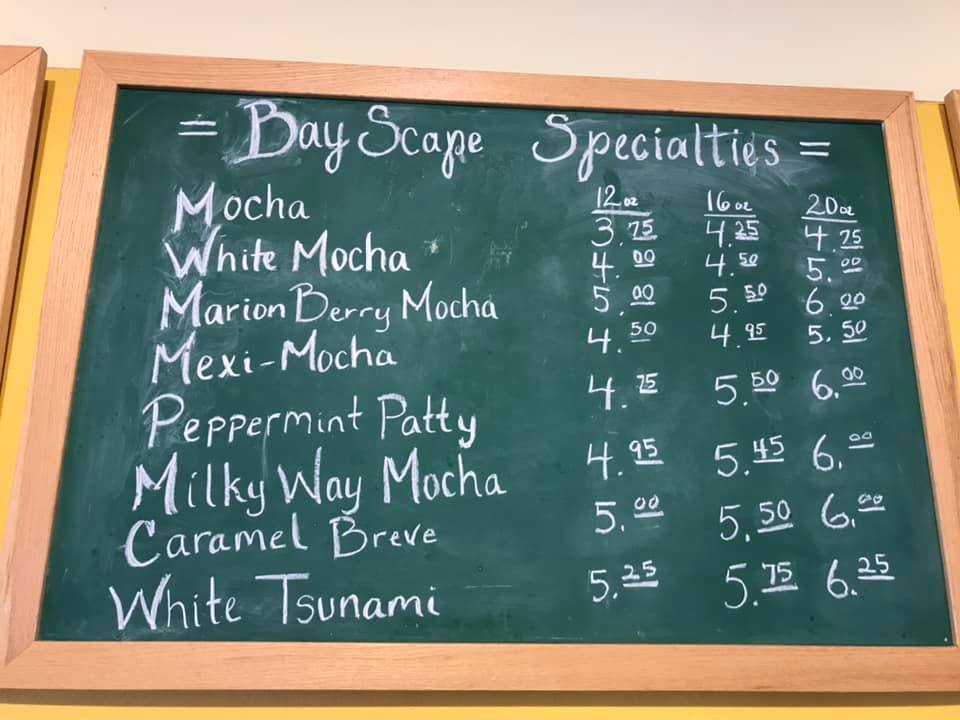 = Bay Scape Specialties =
12oz 16oz 20oz
Mocha 3.75 4.25 4.75
White Mocha 4.00 4.50 5.00
Marion Berry Mocha 5.00 5.50 6.00
Mexi-Mocha 4.50 4.95 5.50
Peppermint Patty 4.75 5.50 6.00
Milky Way Mocha 4.95 5.45 6.00
Caramel Breve 5.00 5.50 6.00
White Tsunami 5.25 5.75 6.25